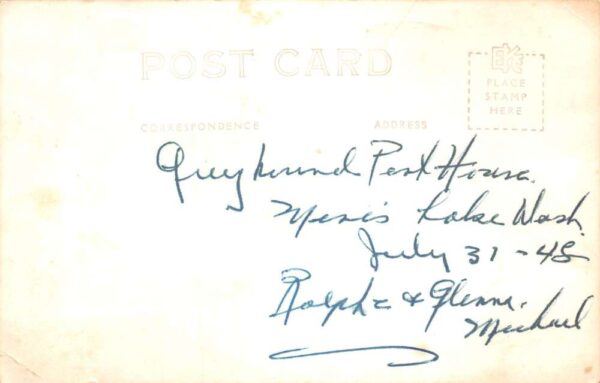 POST CARD
EKC
PLACE
STAMP
HERE
CORRESPONDENCE
ADDRESS
Greyhound Post House.
Lake Wash.
July 31-48
Ralph & Glenna.
Michael